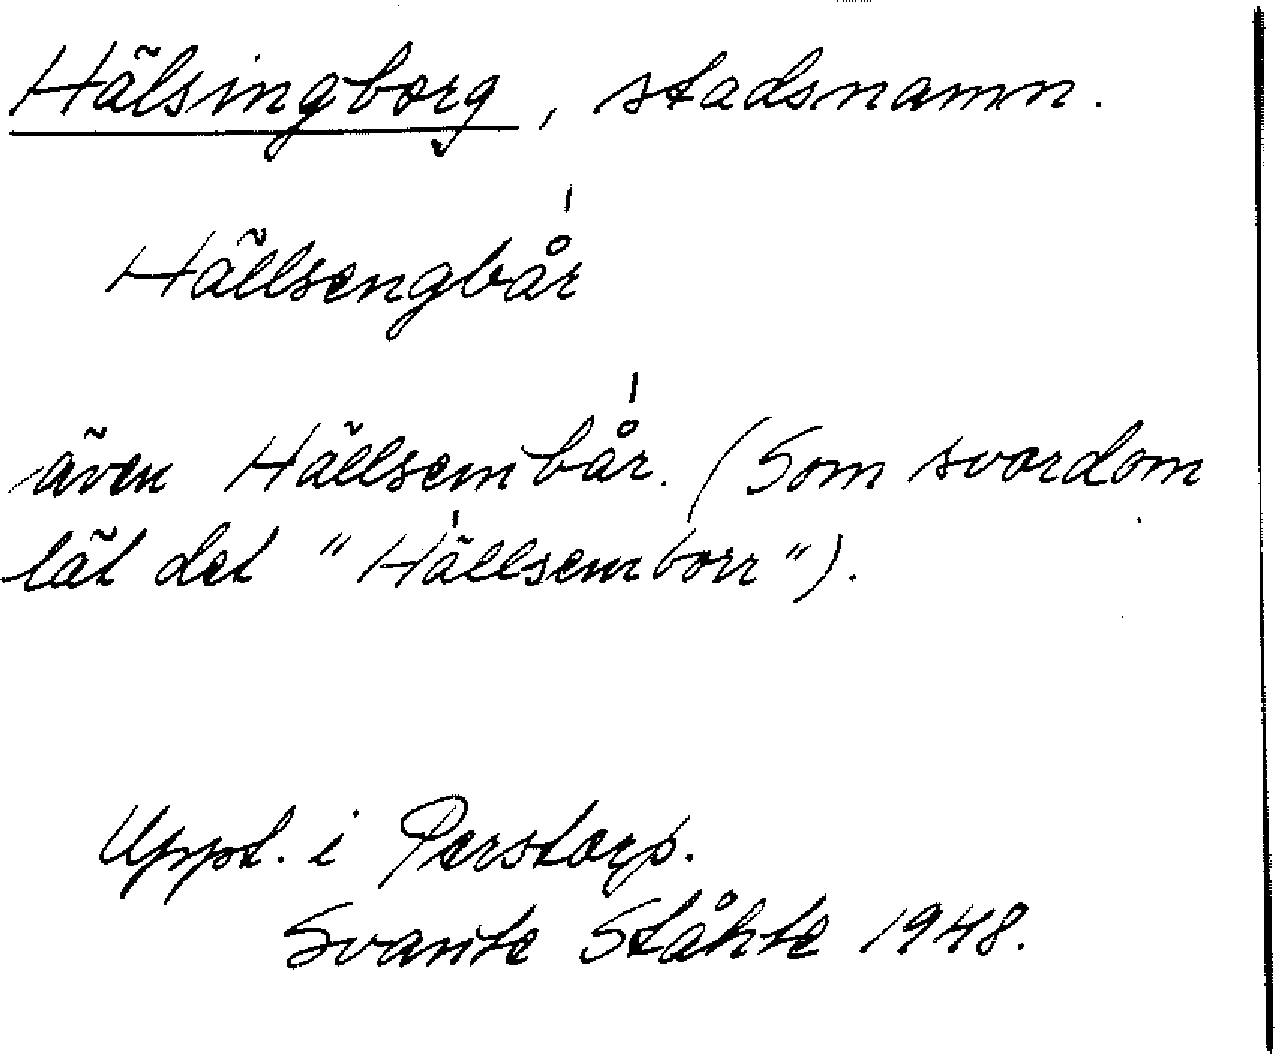 Hälsingborg, stadsnamn.
Hällsengbår
även Hällsembår. (Som svordom
lät det "Hällsemborr").
Uppt. i Perstorp.
Svante Ståhle 1948.